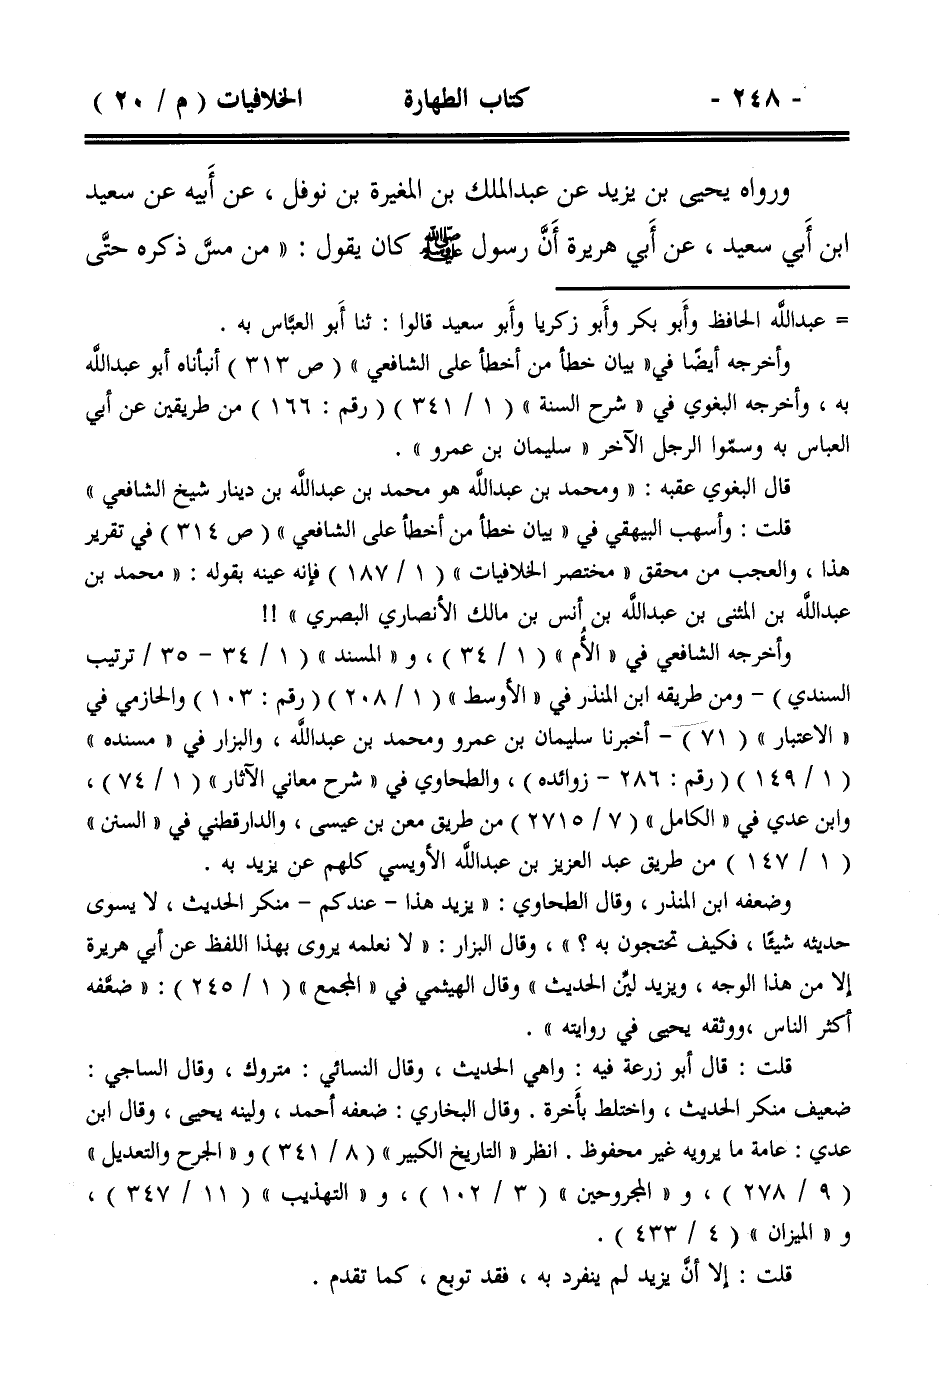 - ٢٤٨ - كتاب الطهارة الخلافيات ( م / ٢٠ )
ورواه يحيى بن يزيد عن عبدالملك بن المغيرة بن نوفل ، عن أَبيه عن سعيد
ابن أَبي سعيد ، عن أَبي هريرة أَنَّ رسول ﷺ كان يقول : « من مسَّ ذكره حتَّى
= عبداللَّه الحافظ وأَبو بكر وأَبو زكريا وأَبو سعيد قالوا : ثنا أَبو العبَّاس به .
وأخرجه أيضًا في« بيان خطأ من أخطأ على الشافعي » ( ص ٣١٣ ) أنبأناه أبو عبداللَّه
به ، وأخرجه البغوي في « شرح السنة » ( ١ / ٣٤١ )( رقم : ١٦٦ ) من طريقين عن أبي
العباس به وسمّوا الرجل الآخر « سليمان بن عمرو » .
قال البغوي عقبه : « ومحمد بن عبداللَّه هو محمد بن عبداللَّه بن دينار شيخ الشافعي »
قلت : وأسهب البيهقي في « بيان خطأ من أخطأ على الشافعي » ( ص ٣١٤ ) في تقرير
هذا ، والعجب من محقق « مختصر الخلافيات » ( ١ / ١٨٧ ) فإنه عينه بقوله : « محمد بن
عبداللَّه بن المثنى بن عبداللَّه بن أنس بن مالك الأنصاري البصري » !!
وأخرجه الشافعي في « الأُم » ( ١ / ٣٤ ) ، و « المسند » ( ١ / ٣٤ - ٣٥ / ترتيب
السندي ) - ومن طريقه ابن المنذر في « الأوسط » ( ١ / ٢٠٨ )( رقم : ١٠٣ ) والحازمي في
« الاعتبار » ( ٧١ ) - أخبرنا سليمان بن عمرو ومحمد بن عبداللَّه ، والبزار في « مسنده »
( ١ / ١٤٩ )( رقم : ٢٨٦ - زوائده ) ، والطحاوي في « شرح معاني الآثار » ( ١ / ٧٤ ) ،
وابن عدي في « الكامل » ( ٧ / ٢٧١٥ ) من طريق معن بن عيسى ، والدارقطني في « السنن »
( ١ / ١٤٧ ) من طريق عبد العزيز بن عبداللَّه الأويسي كلهم عن يزيد به .
وضعفه ابن المنذر ، وقال الطحاوي : « يزيد هذا - عندكم - منكر الحديث ، لا يسوى
حديثه شيئًا ، فكيف تحتجون به ؟ » ، وقال البزار : « لا نعلمه يروى بهذا اللفظ عن أبي هريرة
إلا من هذا الوجه ، ويزيد ليِّن الحديث » وقال الهيثمي في « المجمع » ( ١ / ٢٤٥ ) : « ضعَّفه
أكثر الناس ،ووثقه يحيى في روايته » .
قلت : قال أبو زرعة فيه : واهي الحديث ، وقال النسائي : متروك ، وقال الساجي :
ضعيف منكر الحديث ، واختلط بأَخرة . وقال البخاري : ضعفه أحمد ، ولينه يحيى ، وقال ابن
عدي : عامة ما يرويه غير محفوظ . انظر « التاريخ الكبير » ( ٨ / ٣٤١ ) و « الجرح والتعديل »
( ٩ / ٢٧٨ ) ، و « المجروحين » ( ٣ / ١٠٢ ) ، و « التهذيب » ( ١١ / ٣٤٧ ) ،
و « الميزان » ( ٤ / ٤٣٣ ) .
قلت : إلا أنَّ يزيد لم ينفرد به ، فقد توبع ، كما تقدم .